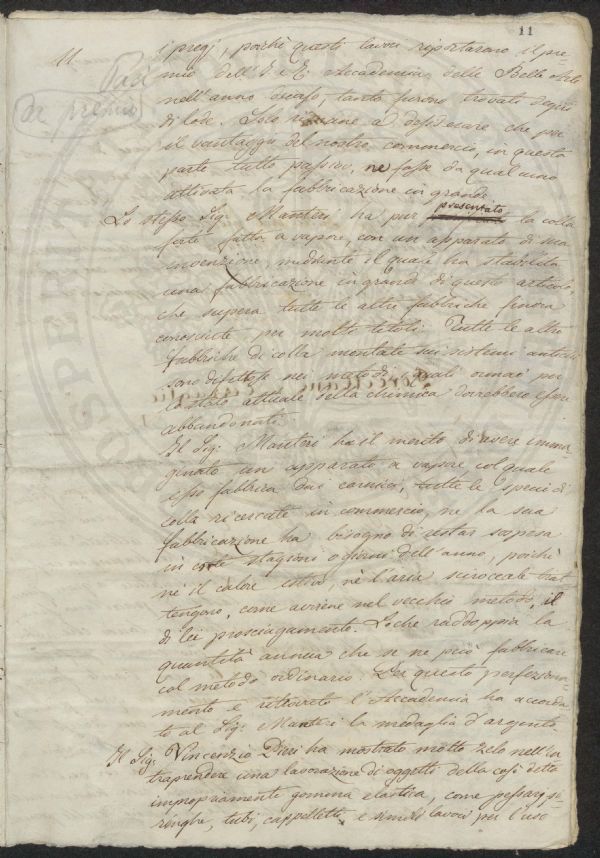 11
11
i pregj, poichè questi lavori riportarono il pre-
mio dell'I. e R. Accademia delle Belle Arti
nell'anno scorso, tanto furono trovati degni
di lode. Solo rimane a desiderare che per
il vantaggio del nostro commercio, in questa
parte tutto passivo, ne fosse da qualcuno
attivata la fabbricazione in grande.
Lo stesso Sig: Manteri ha pur presentato la colla
forte fatta a vapore, con un apparato di sua
invenzione, mediante il quale ha stabilito
una fabbricazione in grande di questo articolo,
che supera tutte le altre fabbriche finora
conosciute per molti titoli. Tutte le altre
fabbriche di colla montate sui sistemi antichi
sono difettose nei metodi, quali ormai per
lo stato attuale della chimica dovrebbero essere
abbandonati.
Il Sig: Manteri ha il merito di avere imma-
ginato un apparato a vapore col quale
esso fabbrica dai carnicci, tutte le specie di
colla ricercate in commercio, ne la sua
fabbricazione ha bisogno di restar sospesa
in certe stagioni o giorni dell'anno, poichè
nè il calore estivo nè l'aria sciroccale trat
tengono, come avviene nel vecchio metodo, il
di lei prosciugamento. Loche raddoppia la
quantità annua che se ne può fabbricare
col metodo ordinario. Per questo perfeziona-
mento e ritrovato l'Accademia ha accorda-
to al Sig: Manteri la medaglia d'argento.
Il Sig: Vincenzio Pieri ha mostrato molto zelo nell'in
traprendere una lavorazione di oggetti della così detta
impropriamente gomma elastica, come pessarj, si-
ringhe, tubi, cappelletti, e simili lavori per l'uso